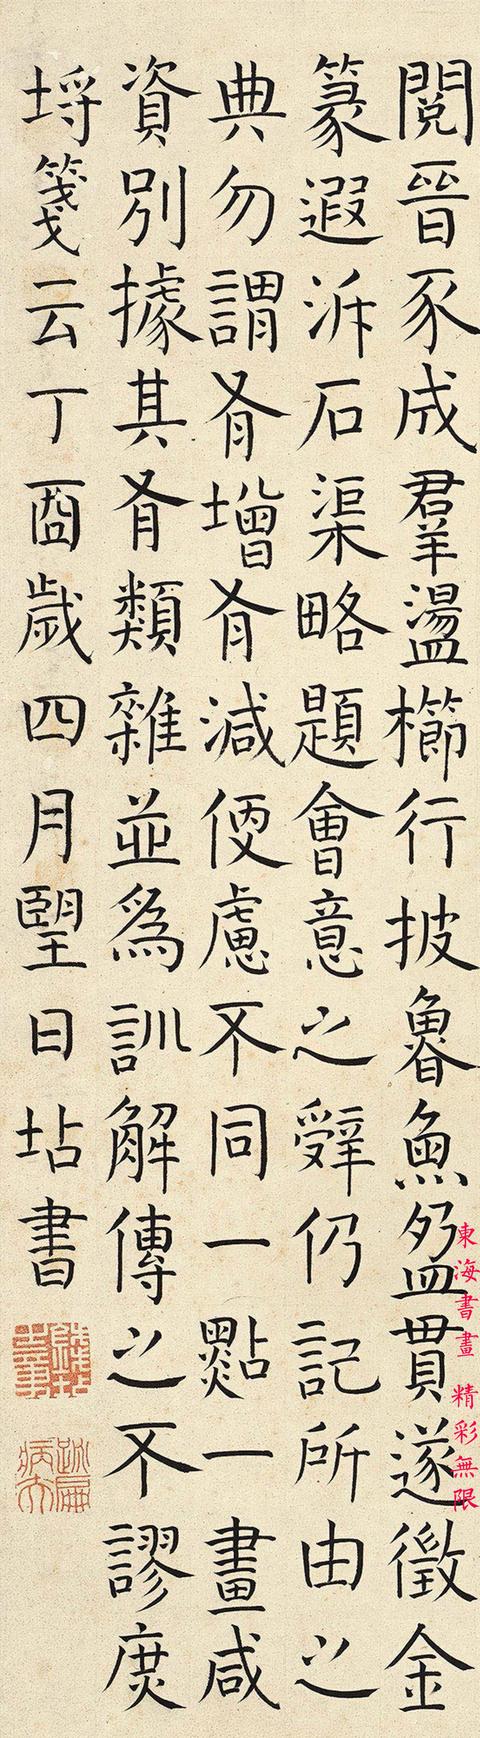 閱晉豕成羣盪櫛行披魯魚盈貫遂徵金
篆遐泝石渠略題會意之辭仍記所由之
典勿謂有增有減便慮不同一點一畫咸
資別據其有類雜並爲訓解傳之不謬庶
埒箋云丁酉歲四月朢日坫書
東海書畫 精彩無限